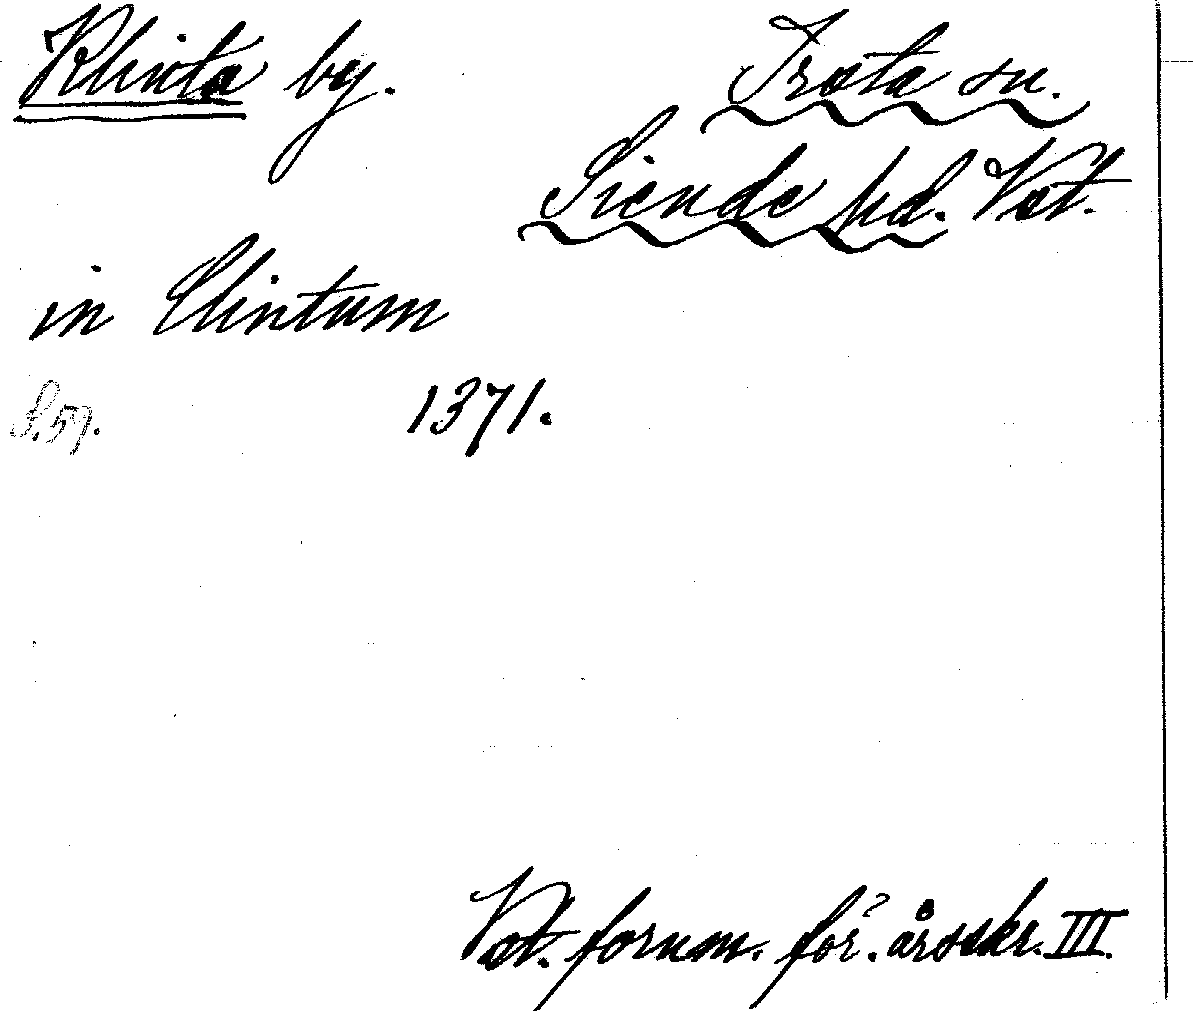 Klinta by.
Irsta sn.
Siende hd. Vst.
in Clintum
S. 57.
1371.
Vst. fornm. för. årsskr. III.